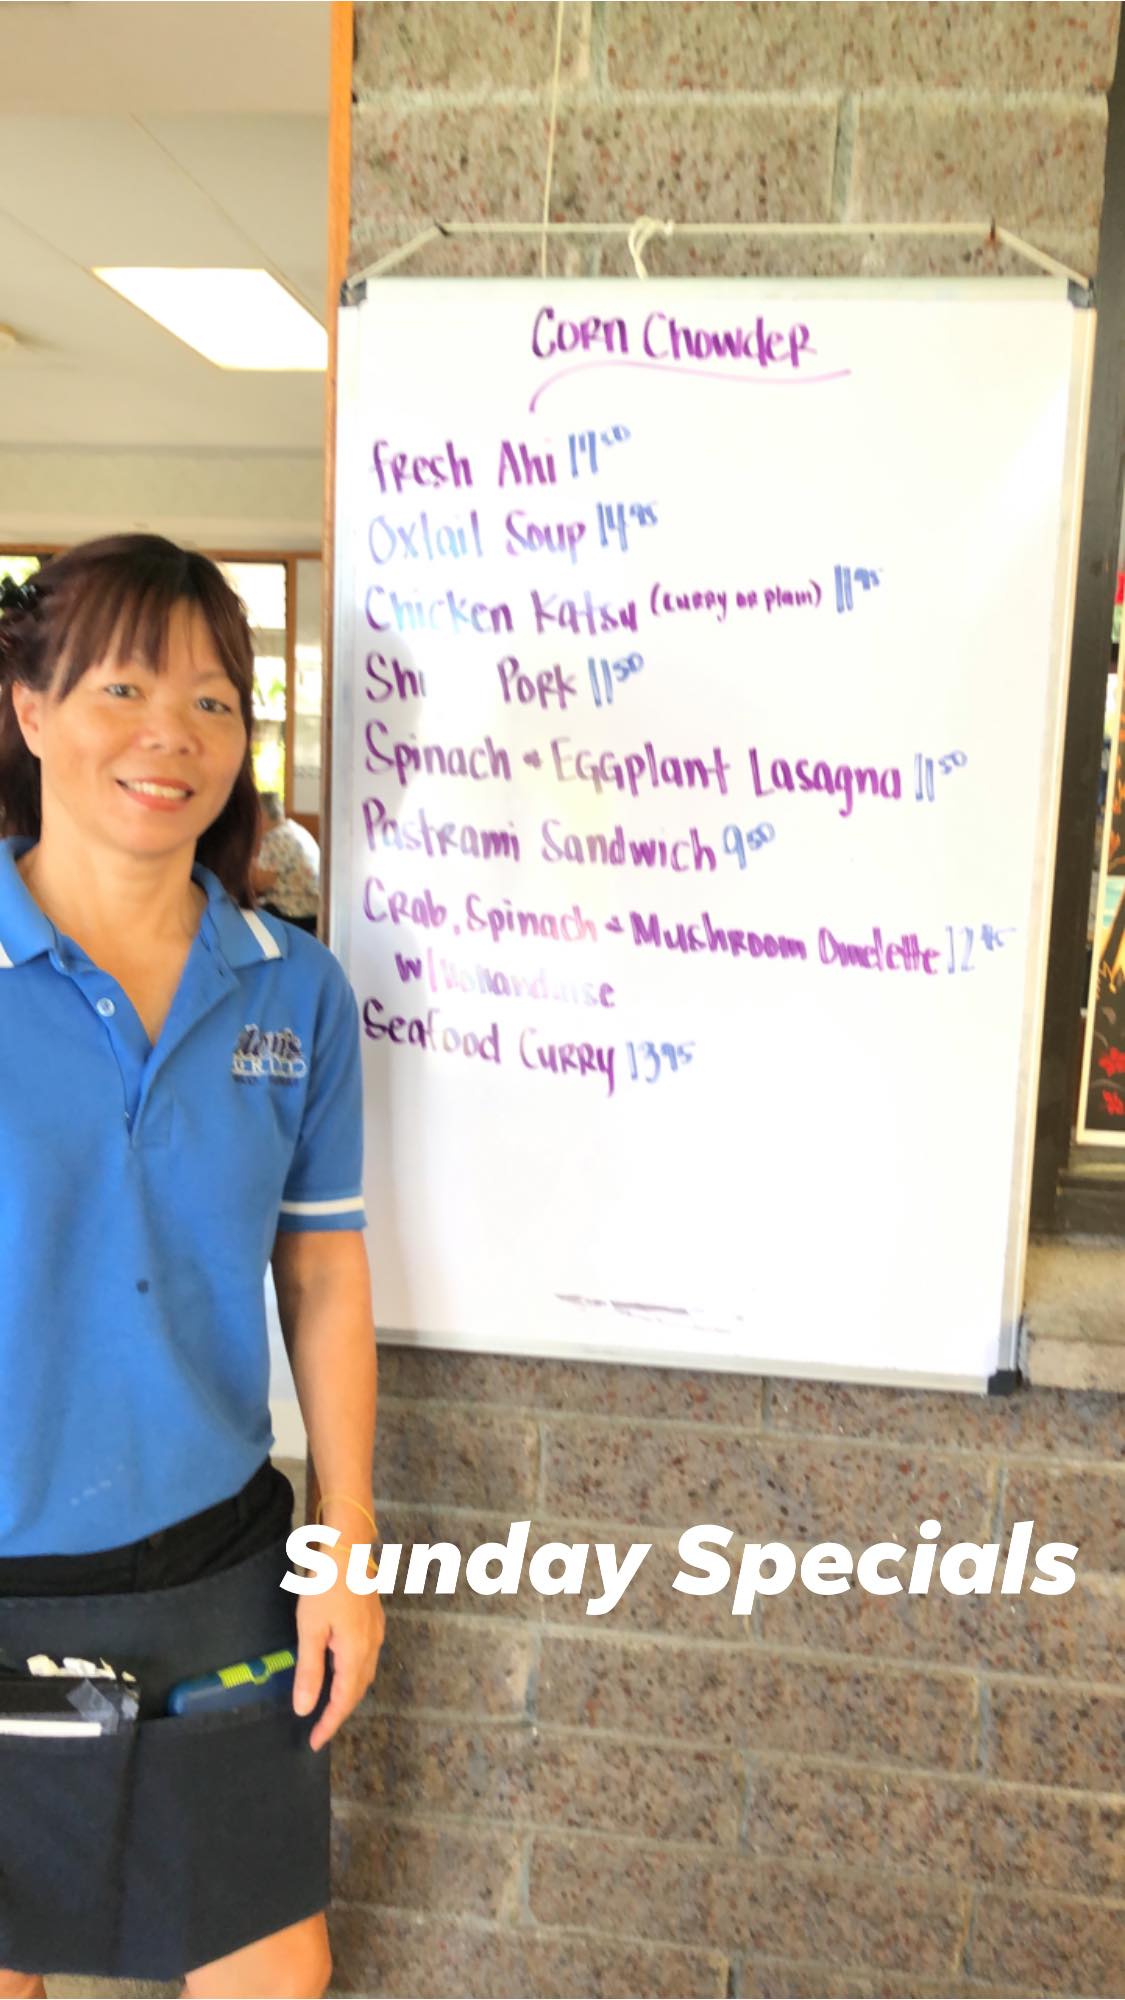 Corn Chowder
fresh Ahi 17⁵⁰
Oxtail Soup 14⁹⁵
Chicken Katsu (curry or plain) 11⁹⁵
Pork 11⁵⁰
Spinach & Eggplant Lasagna 11⁵⁰
Pastrami Sandwich 9⁵⁰
Crab, Spinach & Mushroom Omelette 12⁹⁵
w/
Seafood Curry 13⁹⁵
Sunday Specials